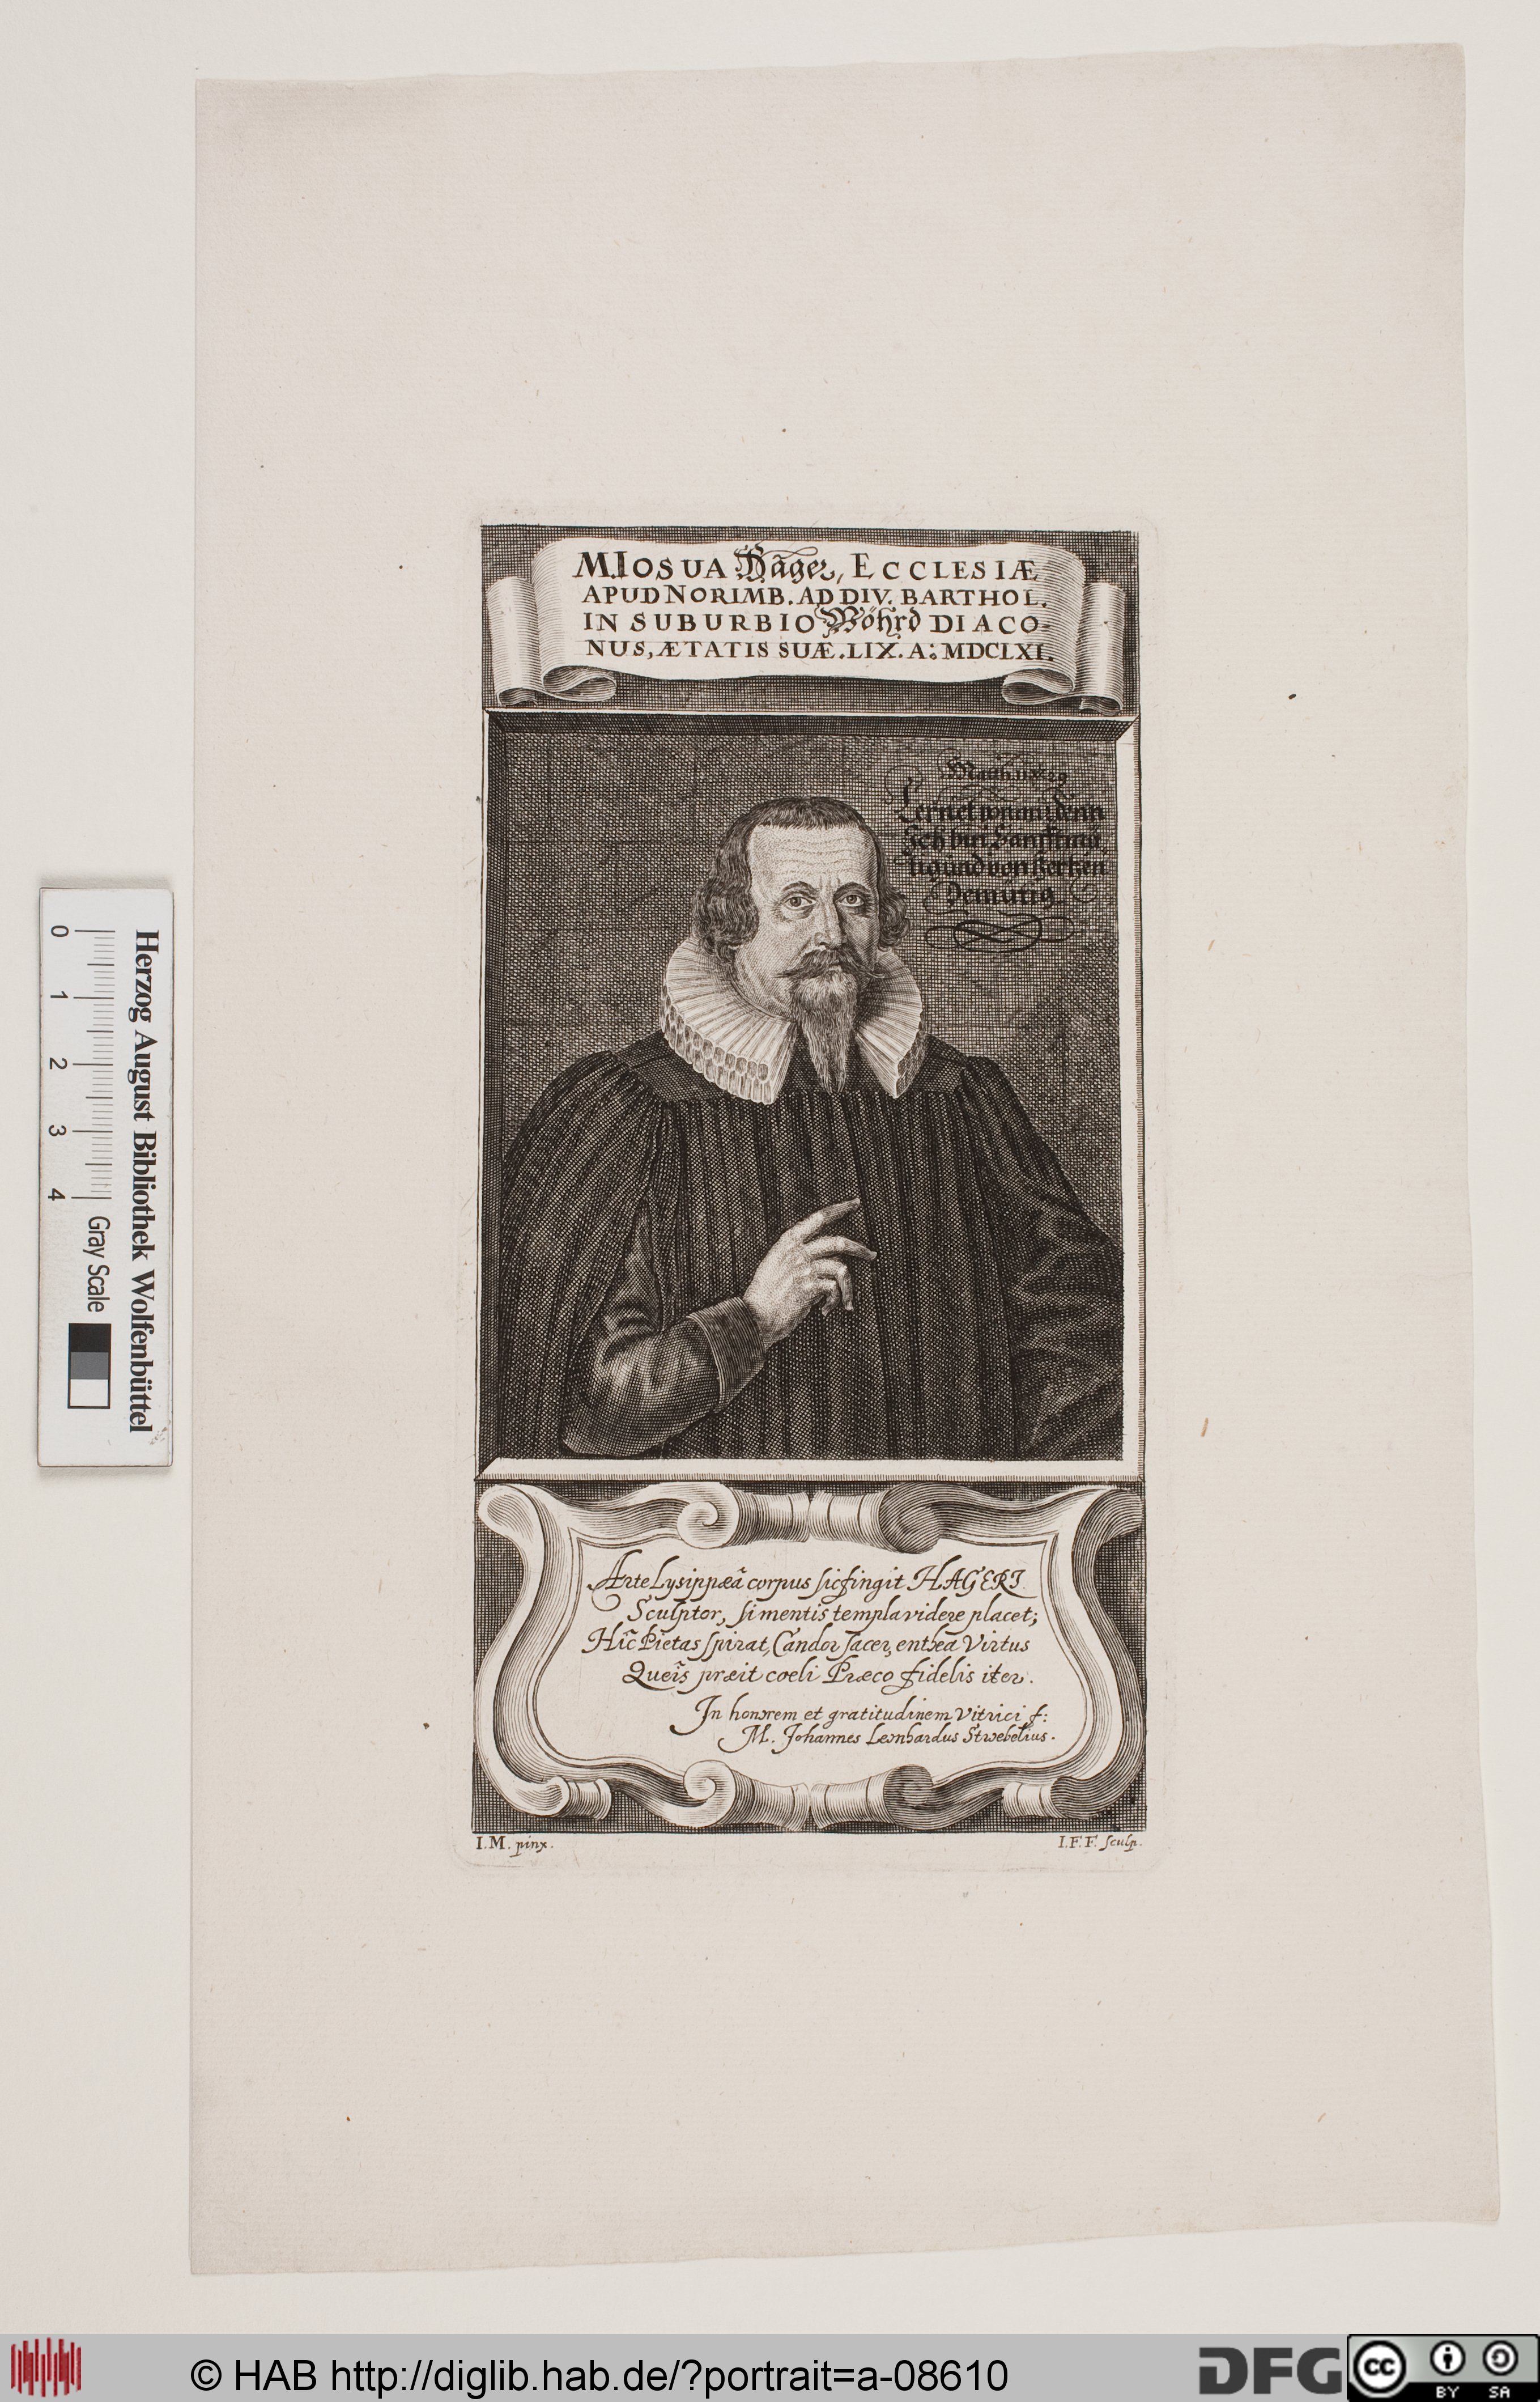 M. IOSUA Häger, ECCLESIÆ
APUD NORIMB. AD DIV. BARTHOL.
IN SUBURBIO Wöhrd DIACO-
NUS, ÆTATIS SUÆ. LIX. A: MDCLXI.
Matth.
Lernet von mir, denn
Ich bin Sanfftmü
tig und von Hertzen
Demütig.
Arte Lysippæâ corpus sic fingit HAGERI
Sculptor, si mentis templa videre placet;
Hîc Pietas spirat, Candor sacer, enthea Virtus
Queîs præit coeli Præco fidelis iter.
In honorem et gratitudinem Vitrici f:
M. Johannes Leonhardus Stwebelius.
I. M. pinx.
I. F. F. sculp.
Herzog August Bibliothek Wolfenbüttel
0 1 2 3 4 Gray Scale
© HAB http://diglib.hab.de/?portrait=a-08610
DFG
cc BY SA